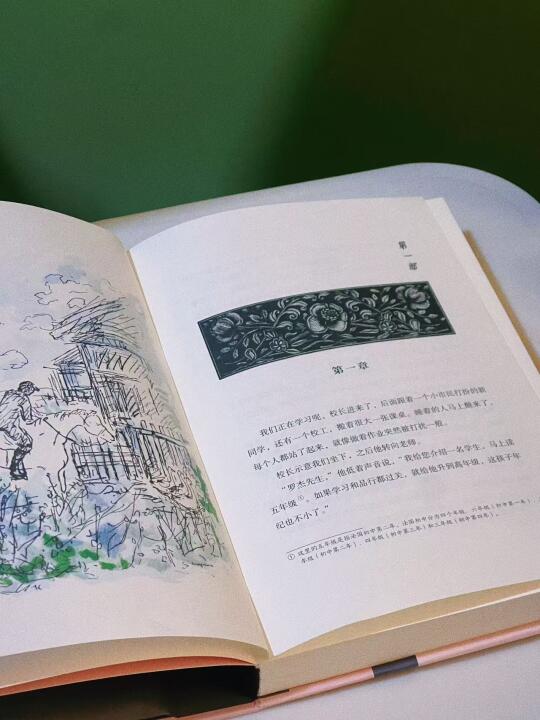 第一部
第一章
我们正在学习呢，校长进来了，后面跟着一个小市民打扮的新
同学，还有一个校工，搬着很大一张课桌。睡着的人马上醒来了，
每个人都站了起来，就像做着作业突然被打扰一般。
校长示意我们坐下，之后他转向老师。
“罗杰先生，”他低着声音说，“我给您介绍一名学生，马上读
五年级①，如果学习和品行都过关，就给他升到高年级，这孩子年
纪也不小了。”
① 这里的五年级是指法国初中第二年，法国初中分为四个年级，六年级（初中第一年）、
年级（初中第二年）、四年级（初中第三年）和三年级（初中第四年）。